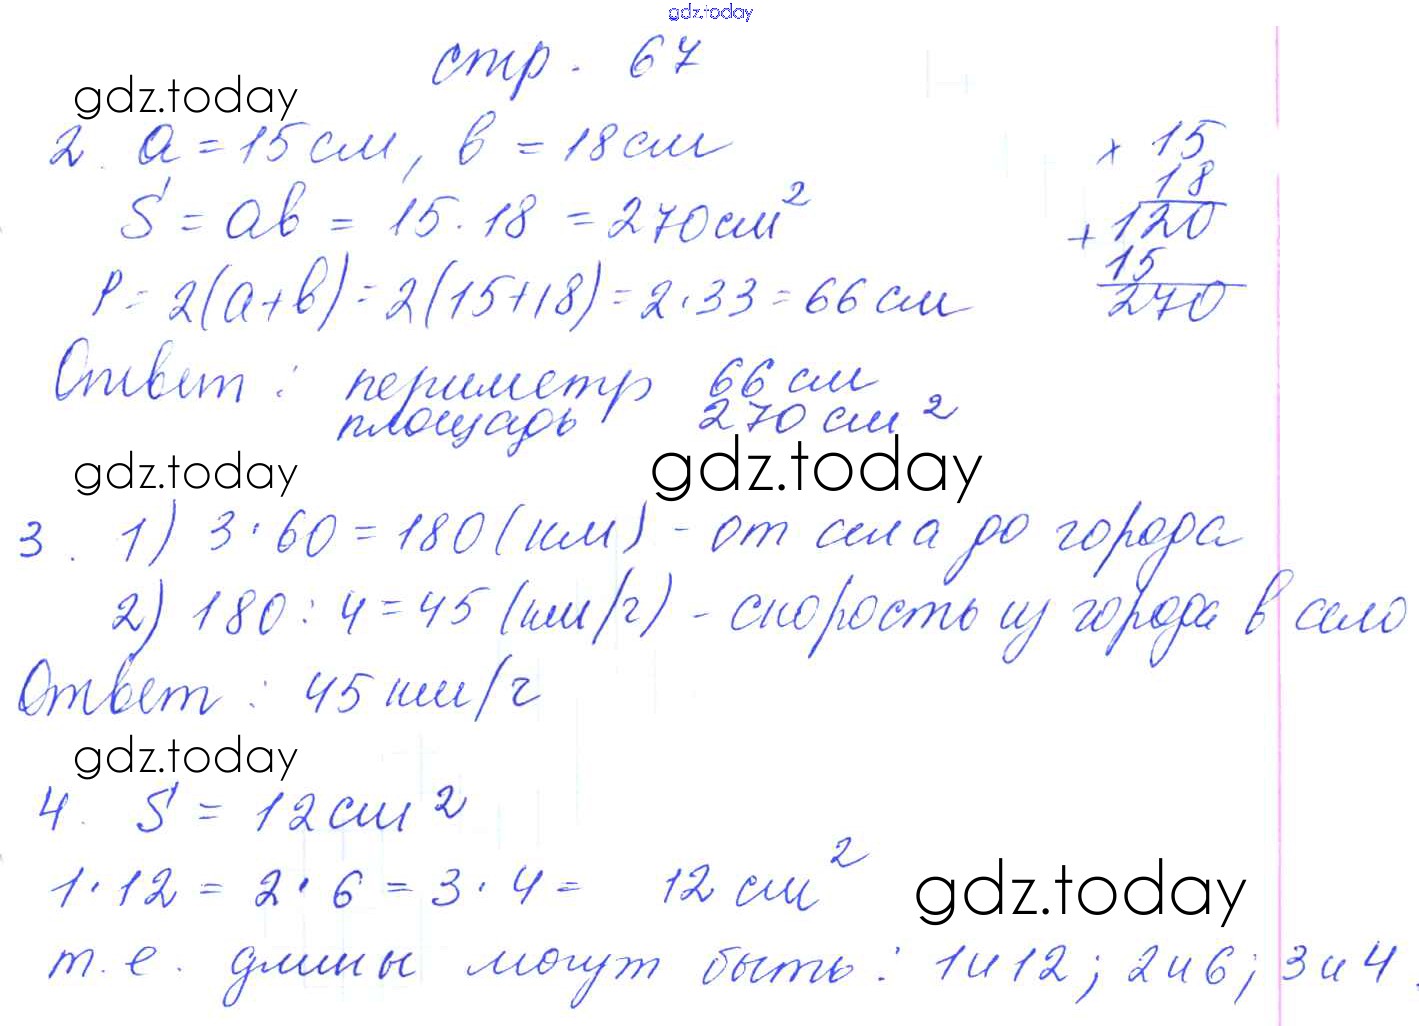 gdz.today
стр. 67
gdz.today
2. a = 15 см, b = 18 см
S = ab = 15 · 18 = 270 см²
P = 2(a+b) = 2(15+18) = 2·33 = 66 см
× 15
18
+ 120
15
270
Ответ: периметр 66 см
площадь 270 см²
gdz.today
gdz.today
3. 1) 3·60 = 180 (км) - от села до города
2) 180 : 4 = 45 (км/г) - скорость из города в село
Ответ: 45 км/г
gdz.today
4. S = 12 см²
1·12 = 2·6 = 3·4 = 12 см²
gdz.today
т.е. длины могут быть: 1и12; 2и6; 3и4.